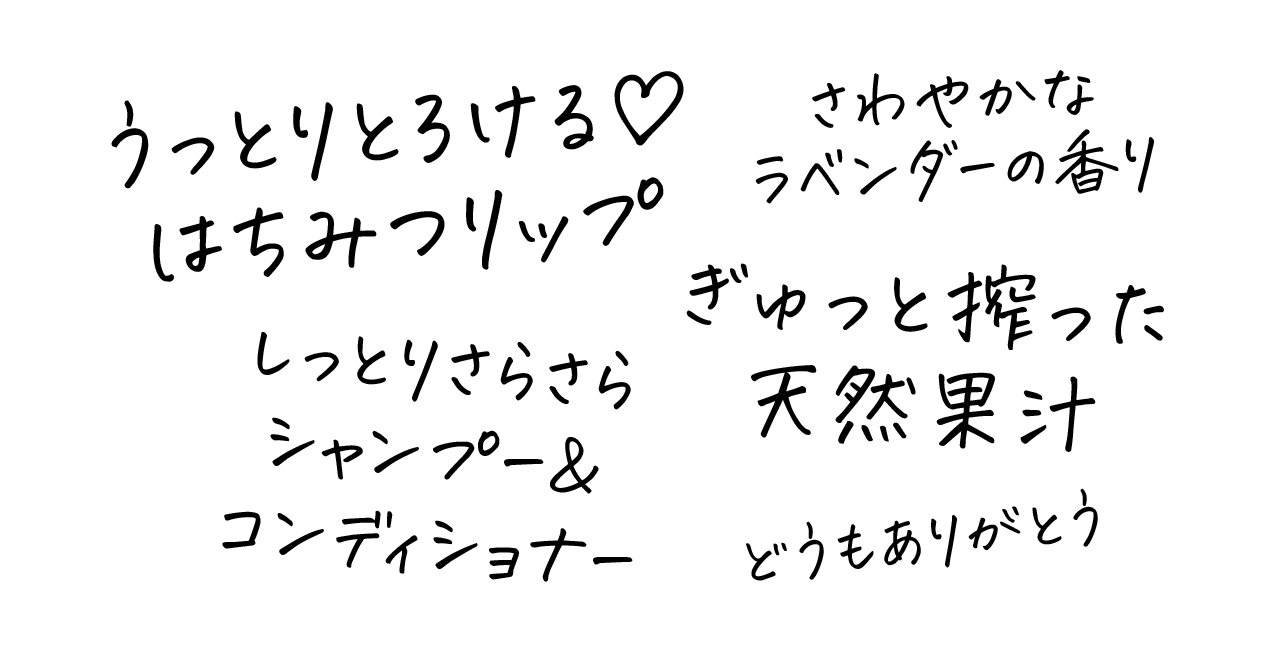 うっとりとろける♡
はちみつリップ
さわやかな
ラベンダーの香り
しっとりさらさら
シャンプー&
コンディショナー
ぎゅっと搾った
天然果汁
どうもありがとう